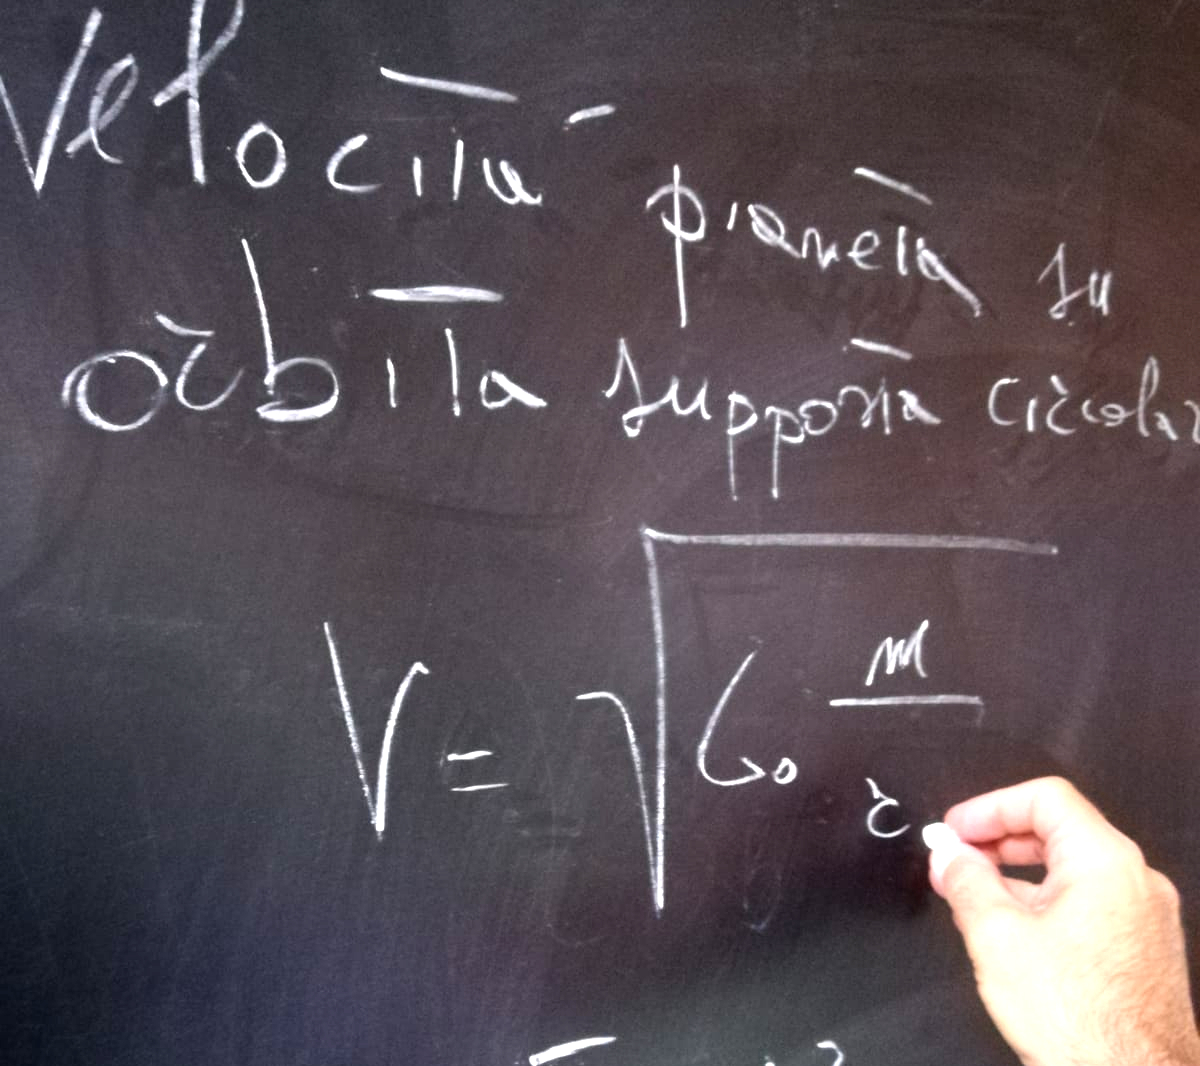 Velocità pianeta su
orbita supposta circolar
V = √G₀ m/r